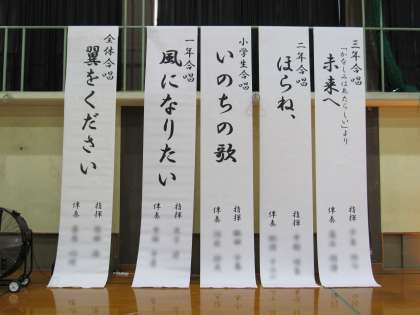 三年合唱
「かなしみはあたらしい」より
未来へ
指揮
伴奏
二年合唱
ほらね、
指揮
伴奏
小学生合唱
いのちの歌
指揮
伴奏
一年合唱
風になりたい
指揮
伴奏
全体合唱
翼をください
指揮
伴奏